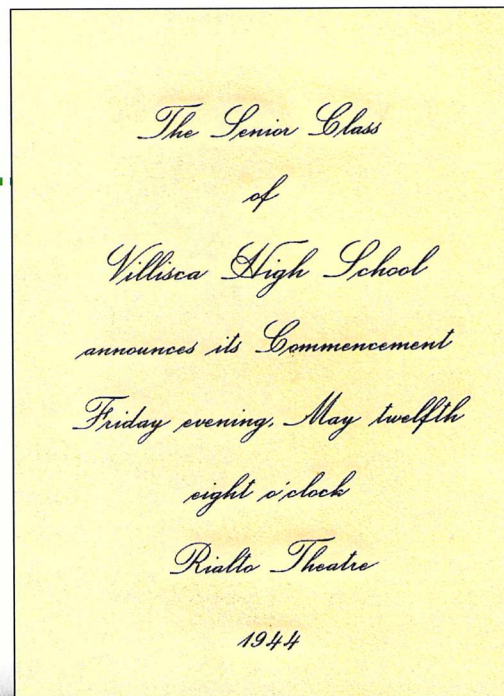 The Senior Class
of
Villisca High School
announces its Commencement
Friday evening, May twelfth
eight o'clock
Rialto Theatre
1944